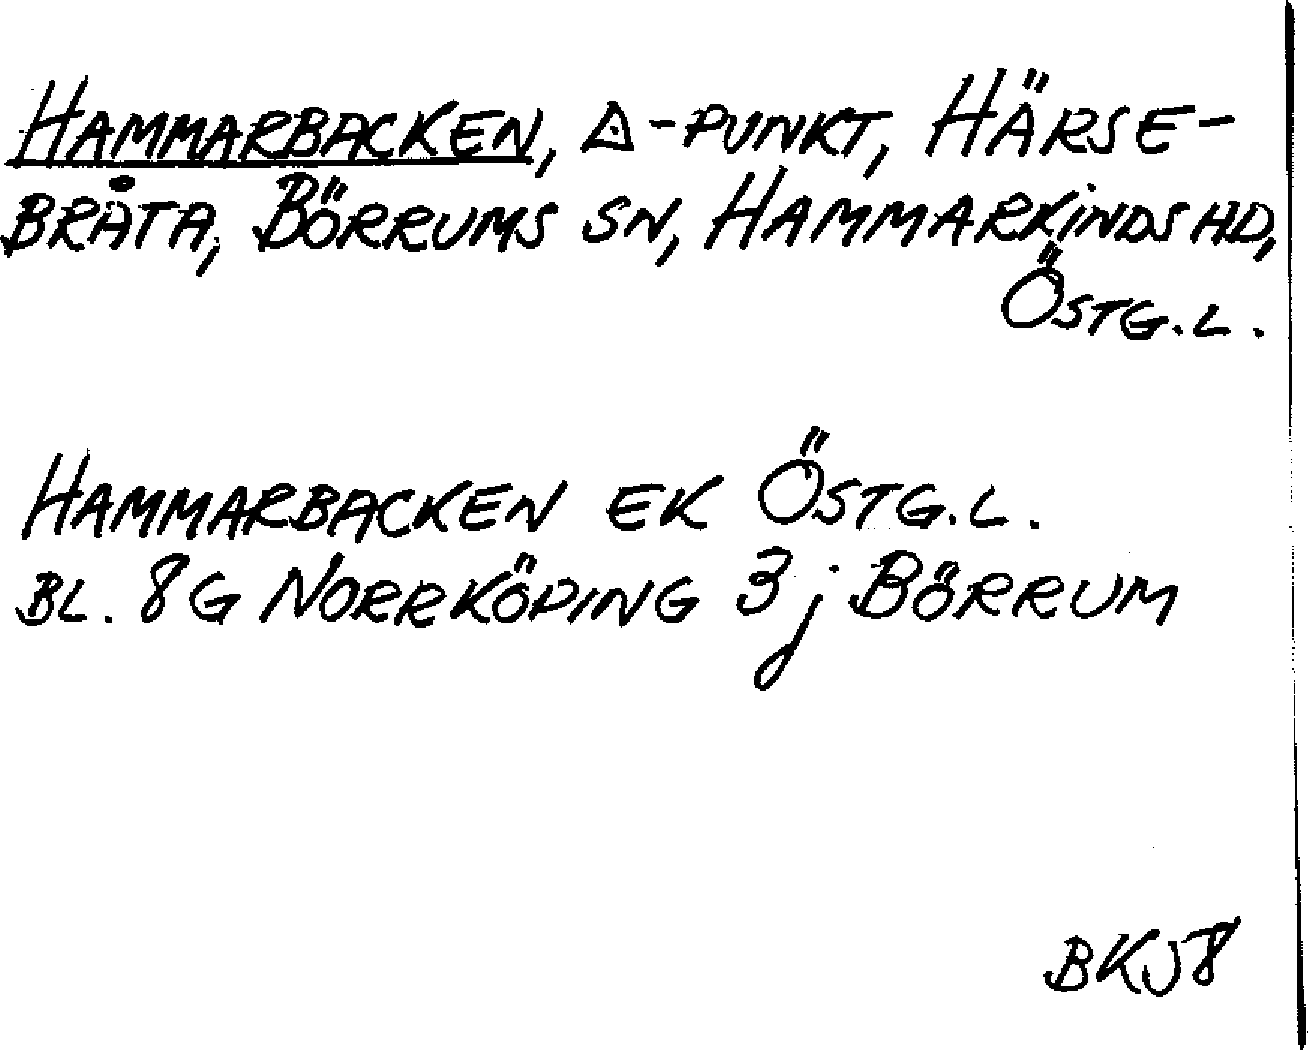 HAMMARBACKEN, △-PUNKT, HÄRSE-
BRÅTA, BÖRRUMS SN, HAMMARKINDS HD,
ÖSTG.L.
HAMMARBACKEN EK ÖSTG.L.
BL. 8G NORRKÖPING 3j BÖRRUM
BKJ8